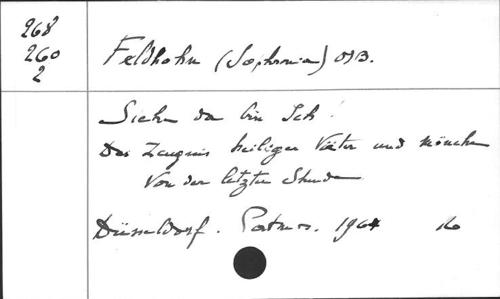 268
260
2
Feldhohn (Sophronia) OSB.
Siehe da bin Ich.
Das Zeugnis heiliger Väter und Mönche
Von der letzten Stunde
Düsseldorf. Patmos. 1964 16